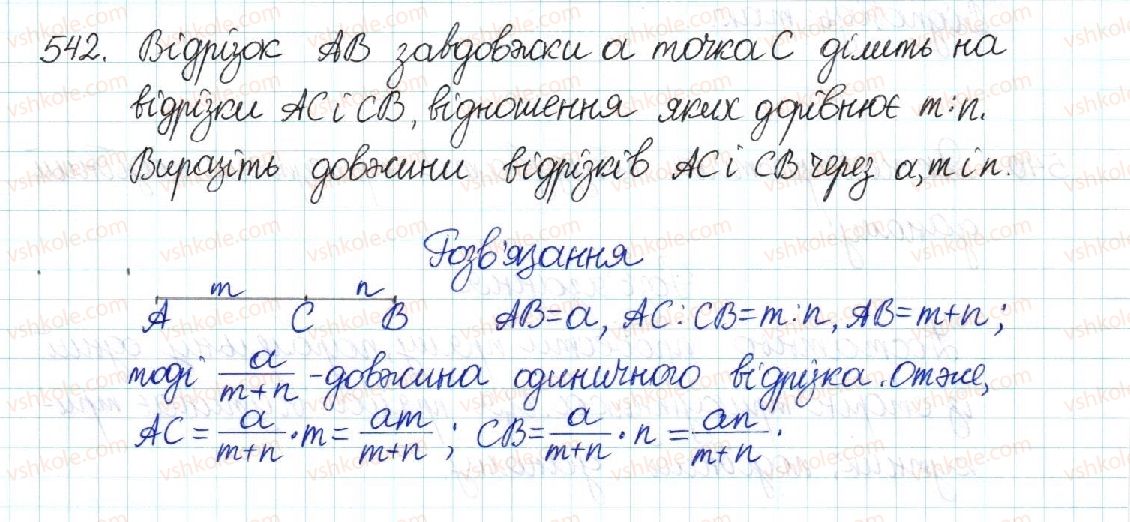 542. Відрізок AB завдовжки a точка C ділить на
відрізки AC і CB, відношення яких дорівнює m:n.
Виразіть довжини відрізків AC і CB через a, m і n.
Розв'язання
m n
A C B AB=a, AC:CB=m:n, AB=m+n;
тоді a/(m+n) - довжина одиничного відрізка. Отже,
AC = a/(m+n) · m = am/(m+n); CB = a/(m+n) · n = an/(m+n).